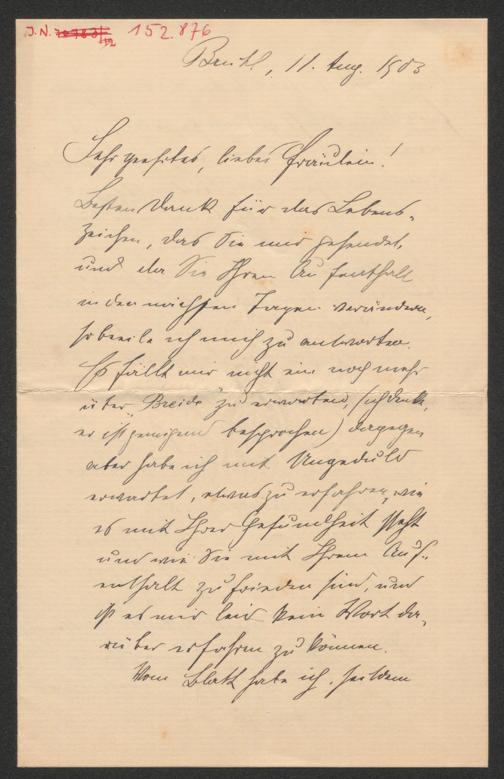 J.N. 152.876
Brühl, 11. Aug. 1903
Sehr geehrtes, liebes Fräulein!
Besten Dank für das Lebens-
zeichen, das Sie mir gesendet,
und da Sie Ihren Aufenthalt
in den nächsten Tagen verändern,
so beeile ich mich zu antworten.
Es fällt mir nicht ein noch mehr
über "Breide" zu erwarten, (ich denke,
er ist genügend besprochen) dagegen
aber habe ich mit Ungeduld
erwartet, etwas zu erfahren, wie
es mit Ihrer Gesundheit steht
und wie Sie mit Ihrem Auf-
enthalt zufrieden sind, und
ist es mir leid kein Wort da-
rüber erfahren zu können.
Vom Blatt habe ich seitdem